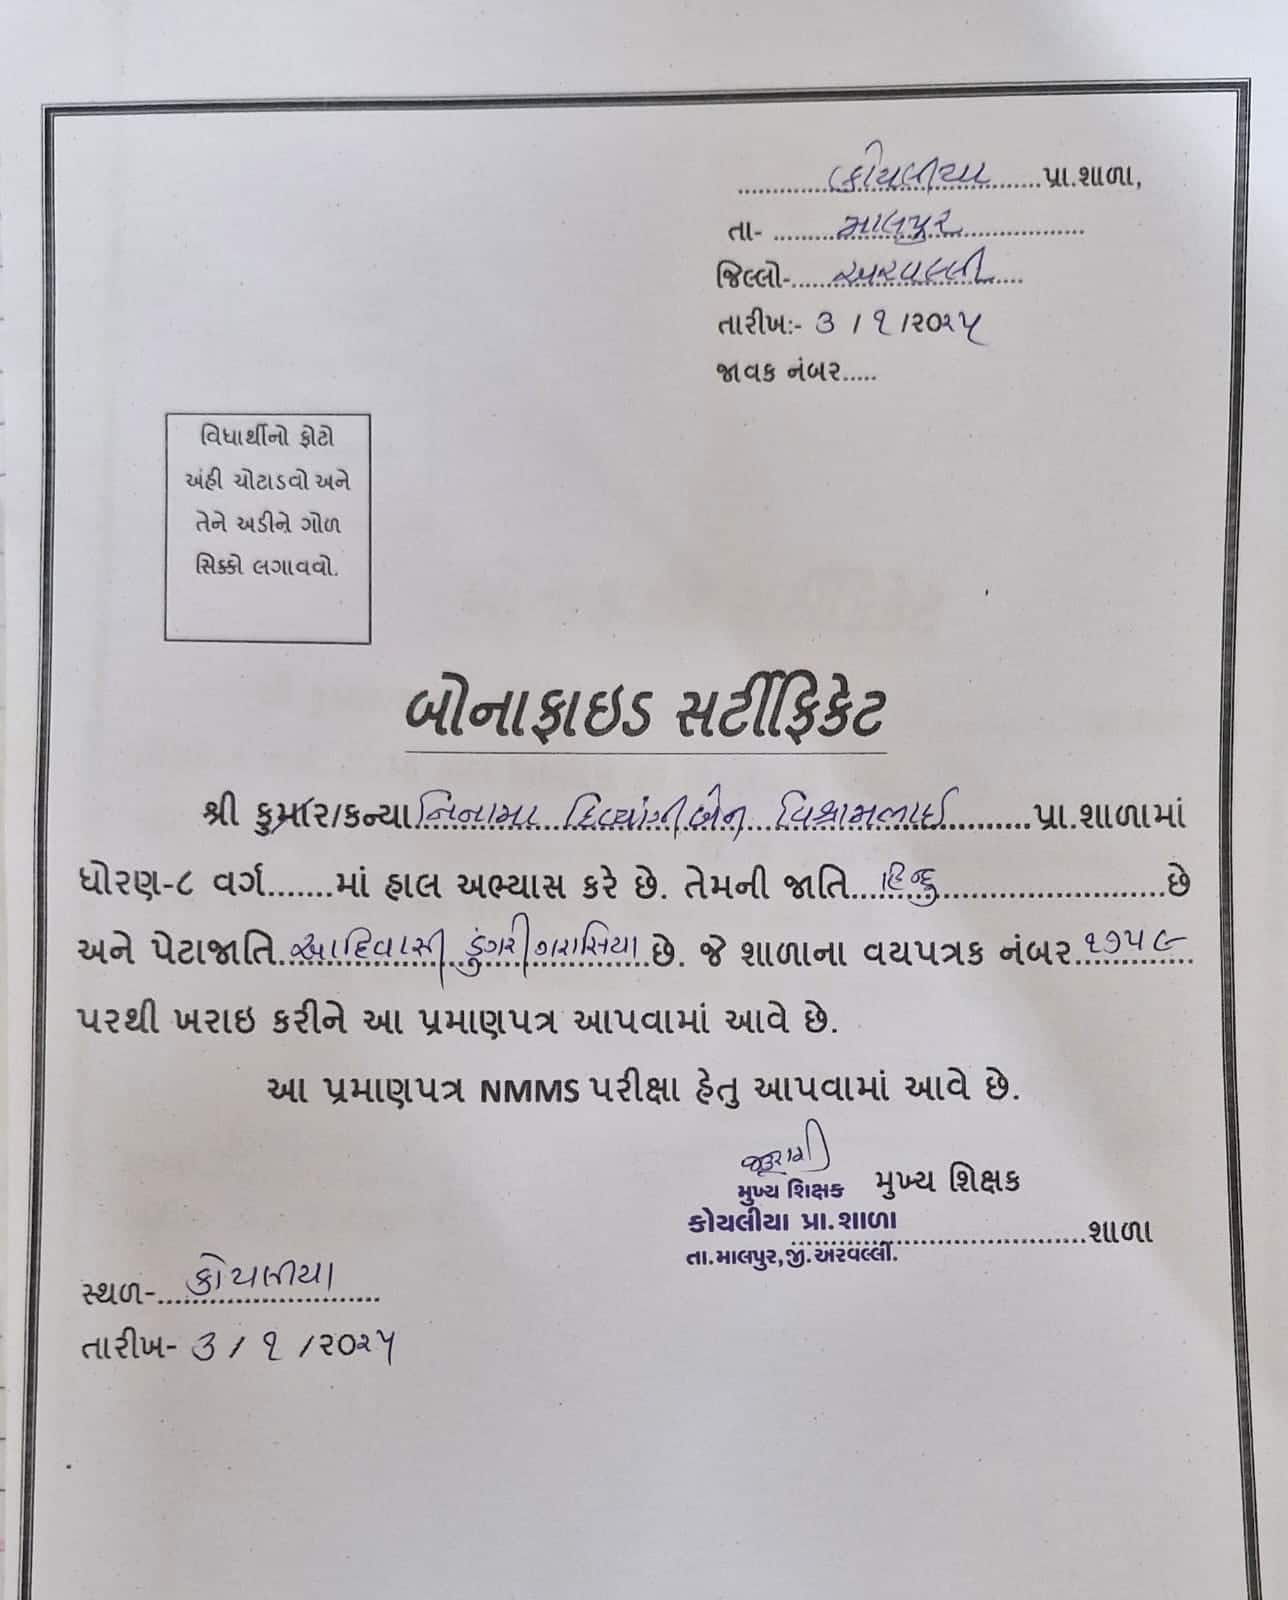 કોયલીયા પ્રા.શાળા,
તા- માલપુર
જિલ્લો- અરવલ્લી
તારીખ:- ૩ / ૧ /૨૦૨૫
જાવક નંબર.....
વિધાર્થીનો ફોટો
અંહી ચોટાડવો અને
તેને અડીને ગોળ
સિક્કો લગાવવો.
બોનાફાઇડ સર્ટીફિકેટ
શ્રી કુમાર/કન્યા નિનામા દિવ્યાંગીબેન વિશ્રામભાઈ પ્રા.શાળામાં
ધોરણ-૮ વર્ગ.......માં હાલ અભ્યાસ કરે છે. તેમની જાતિ હિન્દુ છે
અને પેટાજાતિ આદિવાસી ડુંગરી ગરાસિયા છે. જે શાળાના વયપત્રક નંબર ૧૭૫૯
પરથી ખરાઇ કરીને આ પ્રમાણપત્ર આપવામાં આવે છે.
આ પ્રમાણપત્ર NMMS પરીક્ષા હેતુ આપવામાં આવે છે.
મુખ્ય શિક્ષક મુખ્ય શિક્ષક
કોયલીયા પ્રા.શાળા ......શાળા
તા.માલપુર,જી.અરવલ્લી.
સ્થળ- કોયલીયા
તારીખ- ૩ / ૧ /૨૦૨૫